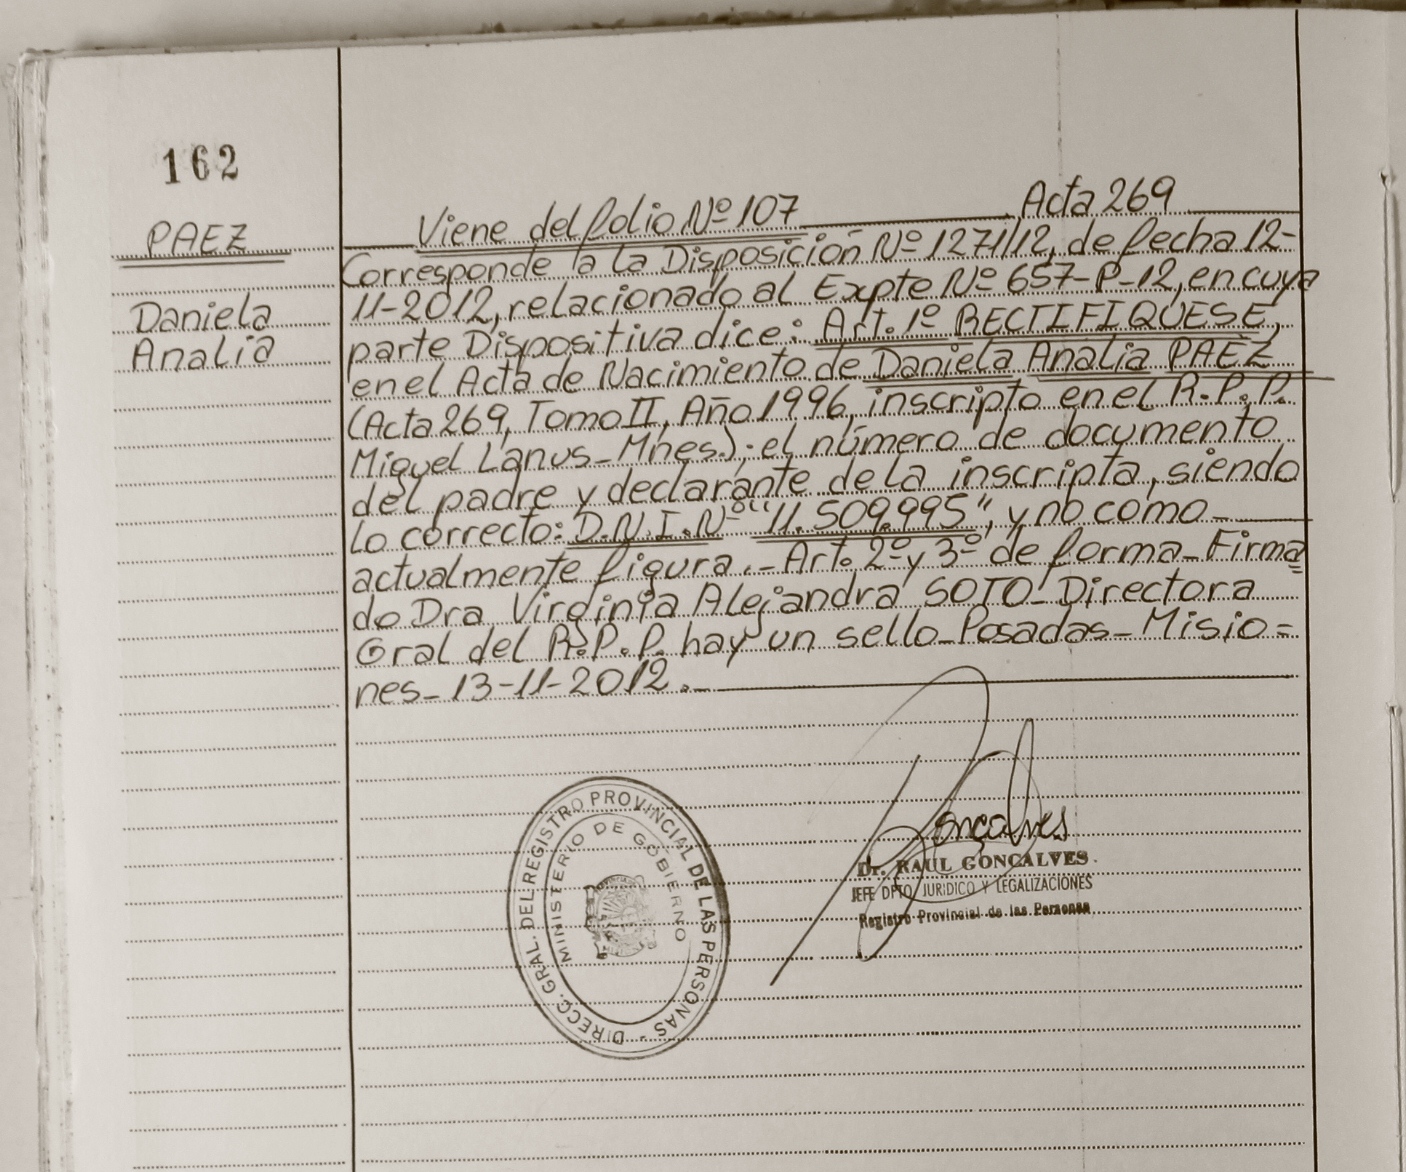 162
PAEZ
Daniela
Analia
Viene del folio Nº 107 Acta 269
Corresponde a la Disposición Nº 1271/12, de fecha 12-
11-2012, relacionado al Expte Nº 657-P-12, en cuya
parte Dispositiva dice: Art. 1º RECTIFIQUESE,
en el Acta de Nacimiento de Daniela Analia PAEZ
(Acta 269, Tomo II, Año 1996, inscripto en el R.P.P.
Miguel Lanus-Mnes.); el número de documento
del padre y declarante de la inscripta, siendo
lo correcto: D.N.I. Nº "11.509.995", y no como
actualmente figura.- Art. 2º y 3º de forma-Firma
do Dra. Virginia Alejandra SOTO-Directora
Gral del R.P.P. hay un sello-Posadas-Misio=
nes-13-11-2012.-
DIRECC. GRAL. DEL REGISTRO PROVINCIAL DE LAS PERSONAS -
MINISTERIO DE GOBIERNO
Goncalves
Dr. RAUL GONCALVES
JEFE DPTO JURIDICO Y LEGALIZACIONES
Registro Provincial de las Personas